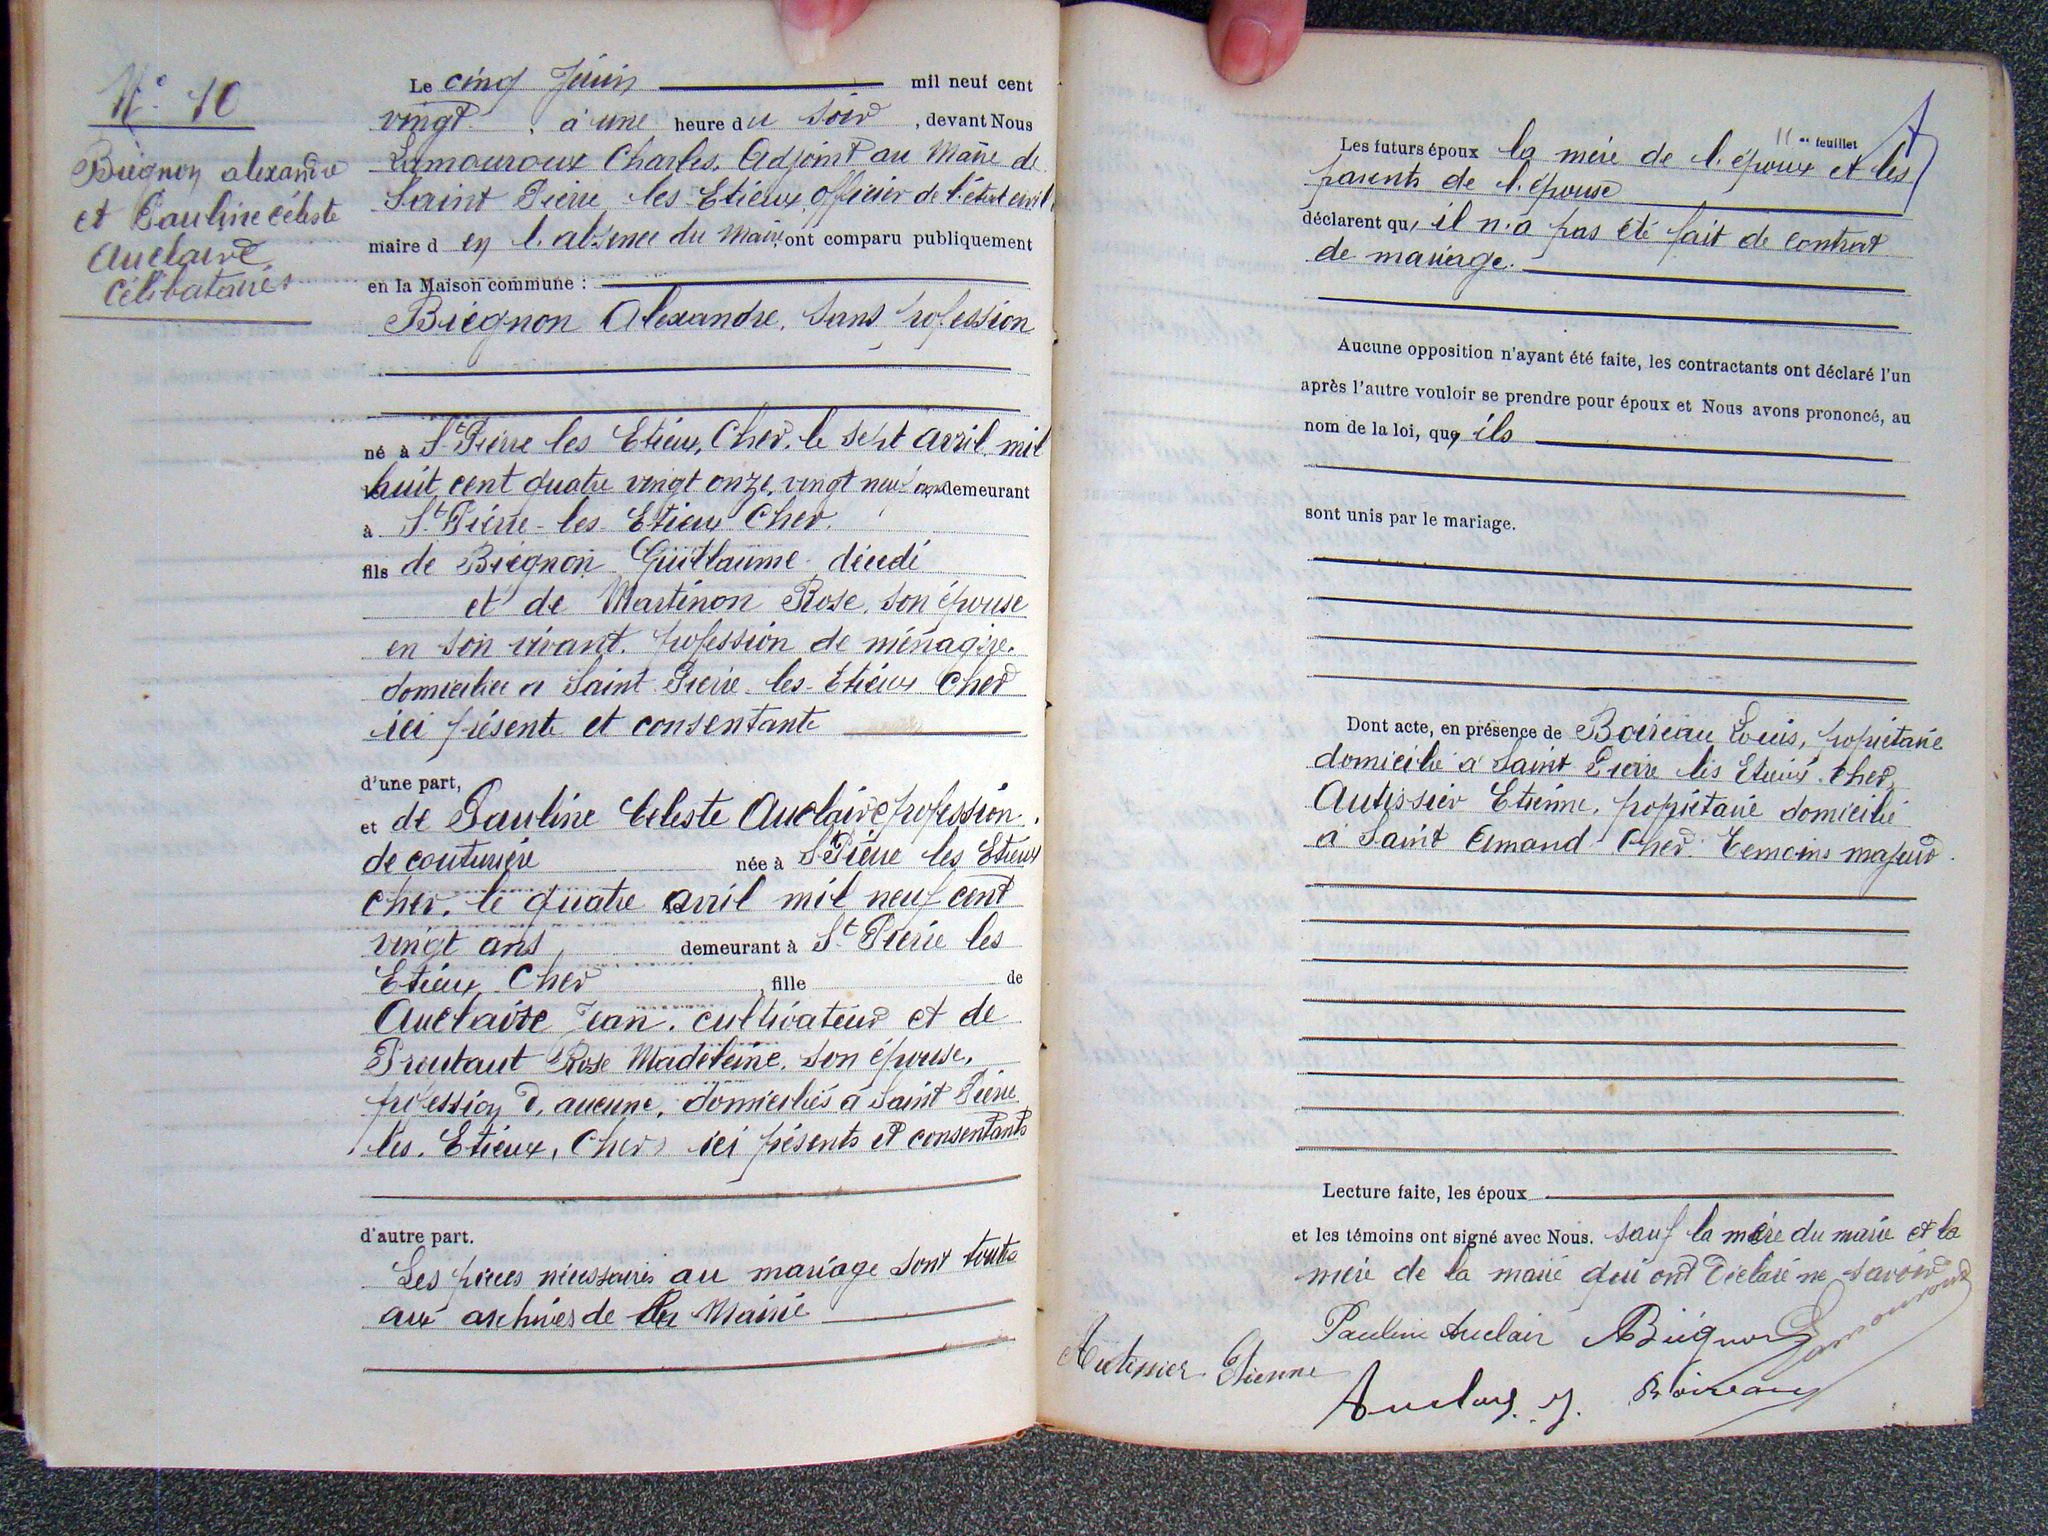 N° 10
Biégnon Alexandre
et Pauline Céleste
Auclaire
Célibataires
Le cinq Juin mil neuf cent
vingt à une heure du soir, devant Nous
Lamouroux Charles, Adjoint au Maire de
Saint Pierre les Etieux officier de l'état civil
maire d en l'absence du Maire ont comparu publiquement
en la Maison commune :
Biégnon Alexandre, sans profession
né à St Pierre les Etieux, Cher, le sept avril mil
huit cent quatre vingt onze, vingt neuf ans demeurant
à St Pierre-les-Etieux Cher.
fils de Biégnon Guillaume décédé
et de Martinon Rose, son épouse
en son vivant, profession de ménagère.
domiciliée à Saint-Pierre-les-Etieux Cher
ici présente et consentante
d'une part,
et de Pauline Céleste Auclaire profession
de couturière née à St Pierre les Etieux
Cher, le quatre avril mil neuf cent
vingt ans demeurant à St Pierre les
Etieux Cher, fille de
Auclaire Jean, cultivateur et de
Proutaut Rose Madeleine, son épouse,
profession d'aucune, domiciliés à Saint Pierre
les Etieux, Cher ici présents et consentants
d'autre part.
Les pièces nécessaires au mariage sont toutes
aux archives de la Mairie
11 me feuillet
Les futurs époux la mère de l'époux et les
parents de l'épouse
déclarent qu'il n'a pas été fait de contrat
de mariage.
Aucune opposition n'ayant été faite, les contractants ont déclaré l'un
après l'autre vouloir se prendre pour époux et Nous avons prononcé, au
nom de la loi, que ils
sont unis par le mariage.
Dont acte, en présence de Boireau Louis, propriétaire
domicilié à Saint Pierre les Etieux Cher,
Autissier Etienne, propriétaire domicilié
à Saint Amand Cher. Témoins majeurs.
Lecture faite, les époux
et les témoins ont signé avec Nous. sauf la mère du marié et la
mère de la mariée qui ont déclaré ne savoir
Pauline Auclair ABiégnon Lamouroux
Autissier Etienne
Auclair J. Boireau